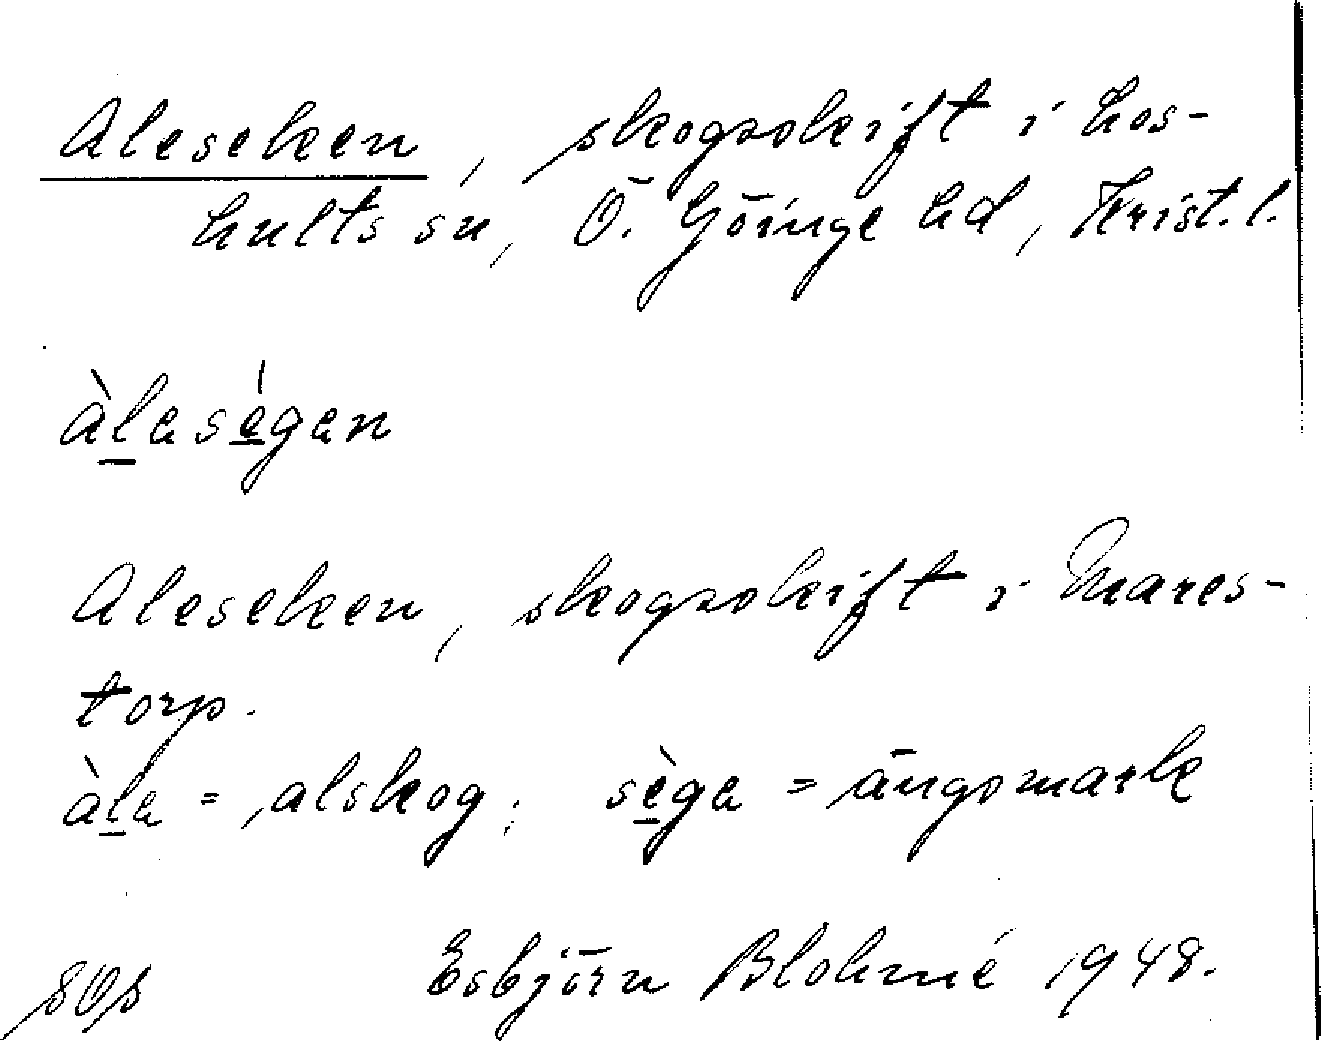 Aleseken, skogsskift i Los-
hults sn, Ö. Göinge hd, Krist. l.
àleségen
Aleseken, skogsskift i Mares-
torp.
àle = alskog; sège = ängsmark
Esbjörn Blohmé 1948.